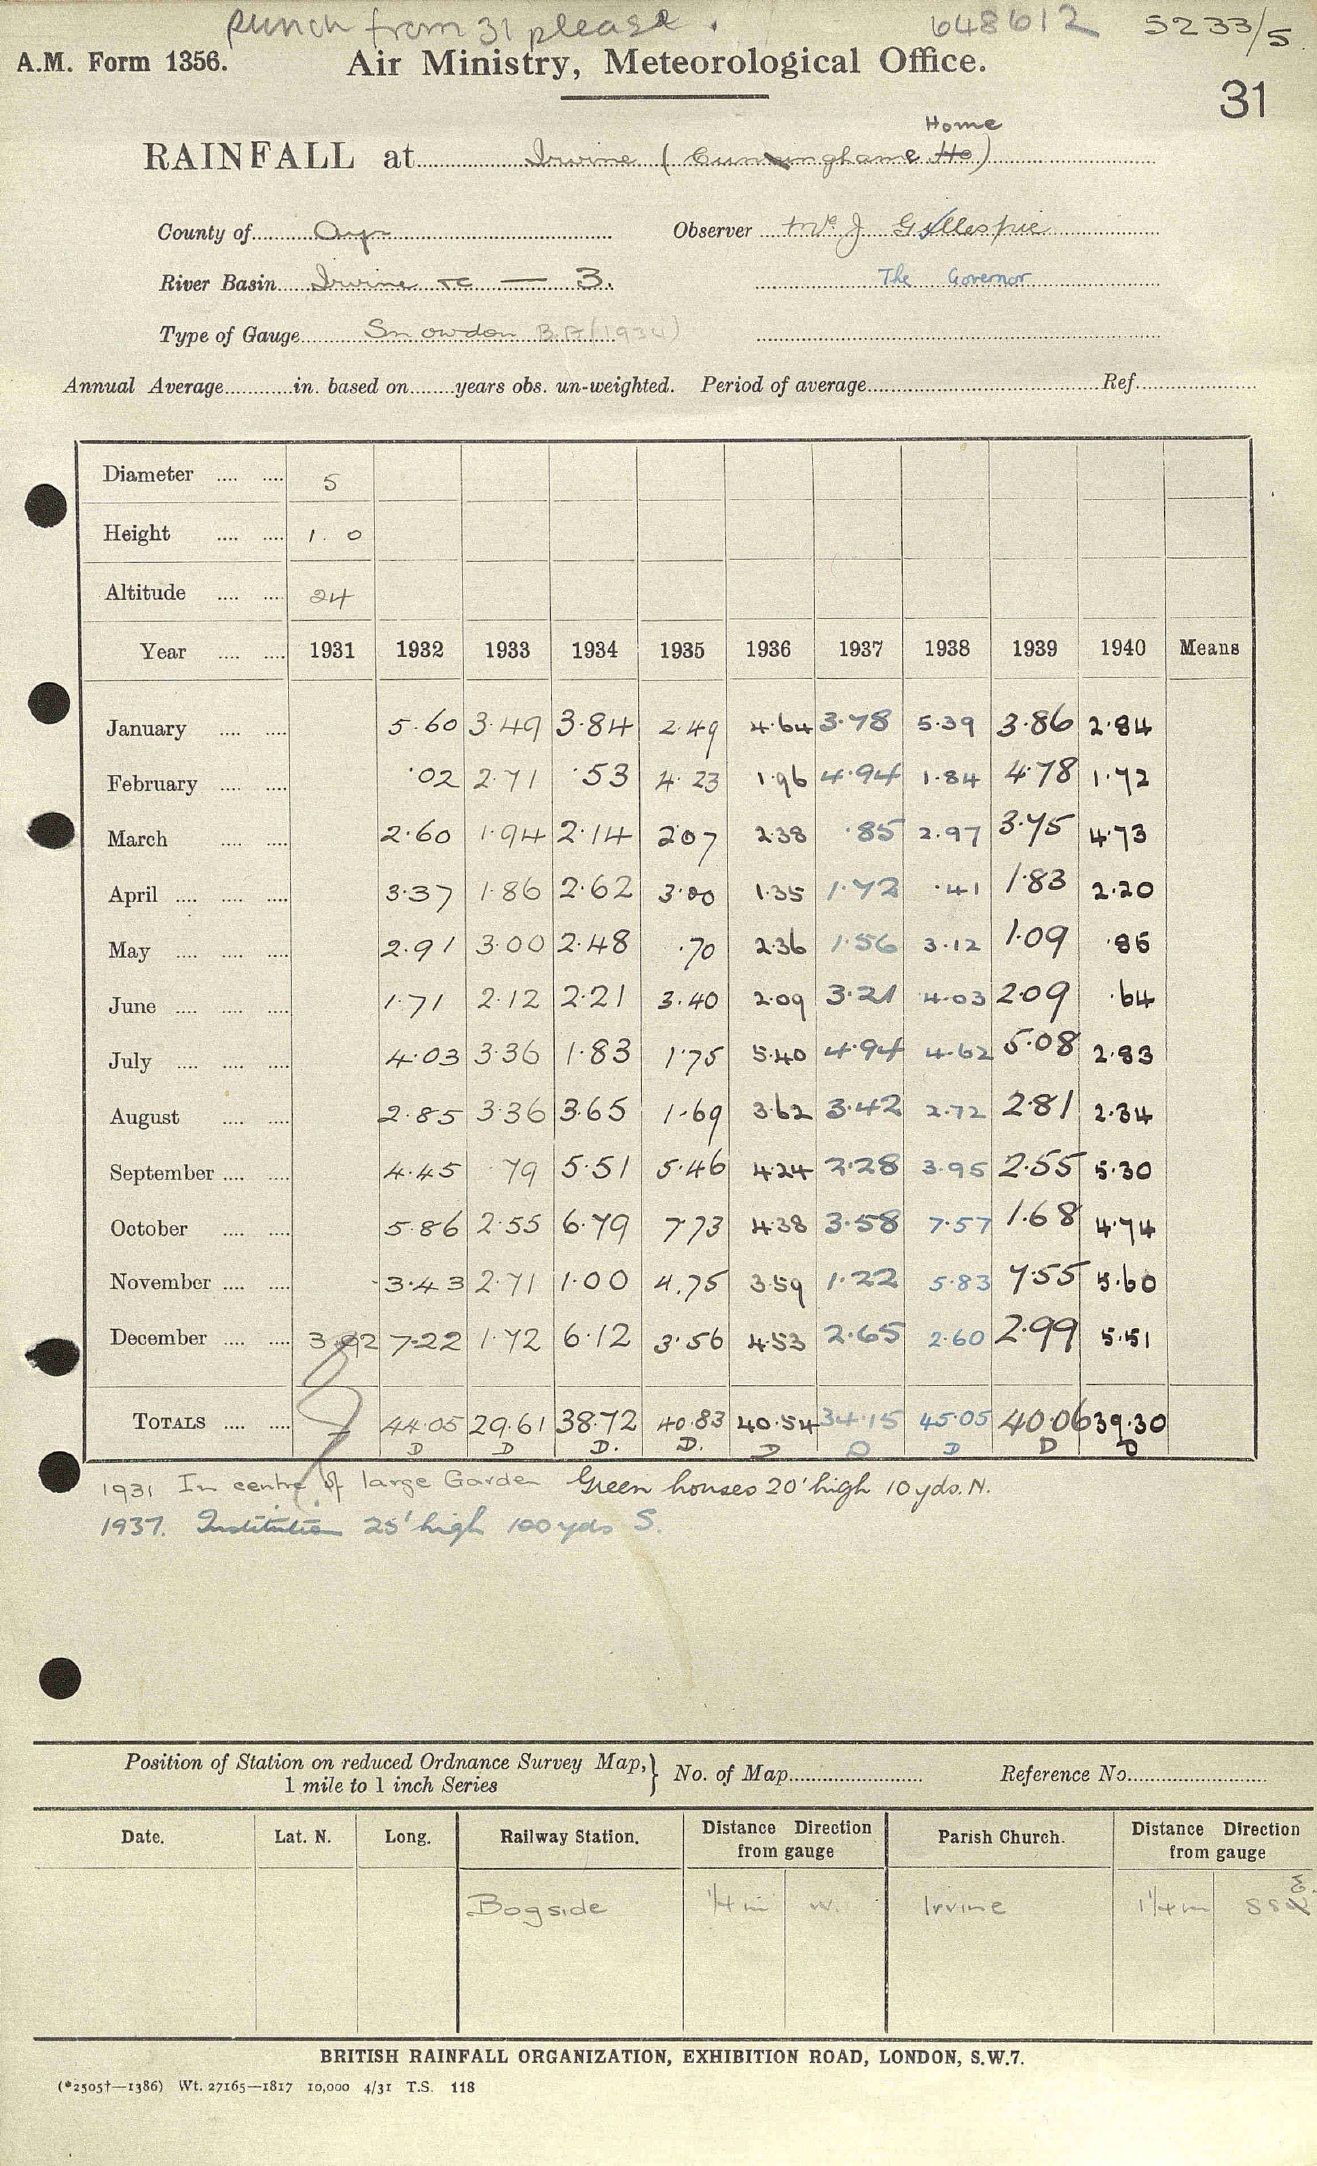 Punch from 31 please. 648612 5233/5
A.M. Form 1356. Air Ministry, Meteorological Office.
31
Home
RAINFALL at Irvine (Cunninghame Ho)
County of Ayr Observer Mr J Gillespie
River Basin Irvine &c — 3. The Governor
Type of Gauge Snowdon B.A (1934)
Annual Average in. based on years obs. un-weighted. Period of average Ref.
Diameter 5
Height 1. 0
Altitude 24
Year 1931 1932 1933 1934 1935 1936 1937 1938 1939 1940 Means
January 5.60 3.49 3.84 2.49 4.64 3.78 5.39 3.86 2.84
February .02 2.71 .53 4.23 1.96 4.94 1.84 4.78 1.72
March 2.60 1.94 2.14 2.07 2.38 .85 2.97 3.75 4.73
April 3.37 1.86 2.62 3.00 1.35 1.72 .41 1.83 2.20
May 2.91 3.00 2.48 .70 2.36 1.56 3.12 1.09 .85
June 1.71 2.12 2.21 3.40 2.09 3.21 4.03 2.09 .64
July 4.03 3.36 1.83 1.75 5.40 4.94 4.62 5.08 2.83
August 2.85 3.36 3.65 1.69 3.62 3.42 2.72 2.81 2.34
September 4.45 .79 5.51 5.46 4.24 2.28 3.95 2.55 5.30
October 5.86 2.55 6.79 7.73 4.38 3.58 7.57 1.68 4.74
November 3.43 2.71 1.00 4.75 3.59 1.22 5.83 7.55 5.60
December 3.92 7.22 1.72 6.12 3.56 4.53 2.65 2.60 2.99 5.51
TOTALS 44.05 29.61 38.72 40.83 40.54 34.15 45.05 40.06 39.30
D D D. D. D D D D D
1931 In centre of large Garden Green houses 20' high 10 yds. N.
1937. Institution 25' high 100 yds S.
Position of Station on reduced Ordnance Survey Map, } No. of Map Reference No.
1 mile to 1 inch Series
Date. Lat. N. Long. Railway Station. Distance Direction from gauge Parish Church. Distance Direction from gauge
Bogside 1/4 m W. Irvine 1 1/4 m SS E.
BRITISH RAINFALL ORGANIZATION, EXHIBITION ROAD, LONDON, S.W.7.
(*2505†—1386) Wt. 27165—1817 10,000 4/31 T.S. 118